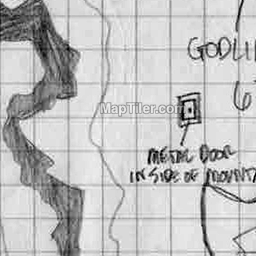 GODLI
MapTiler.com
6
METAL DOOR
INSIDE OF MOUNTA